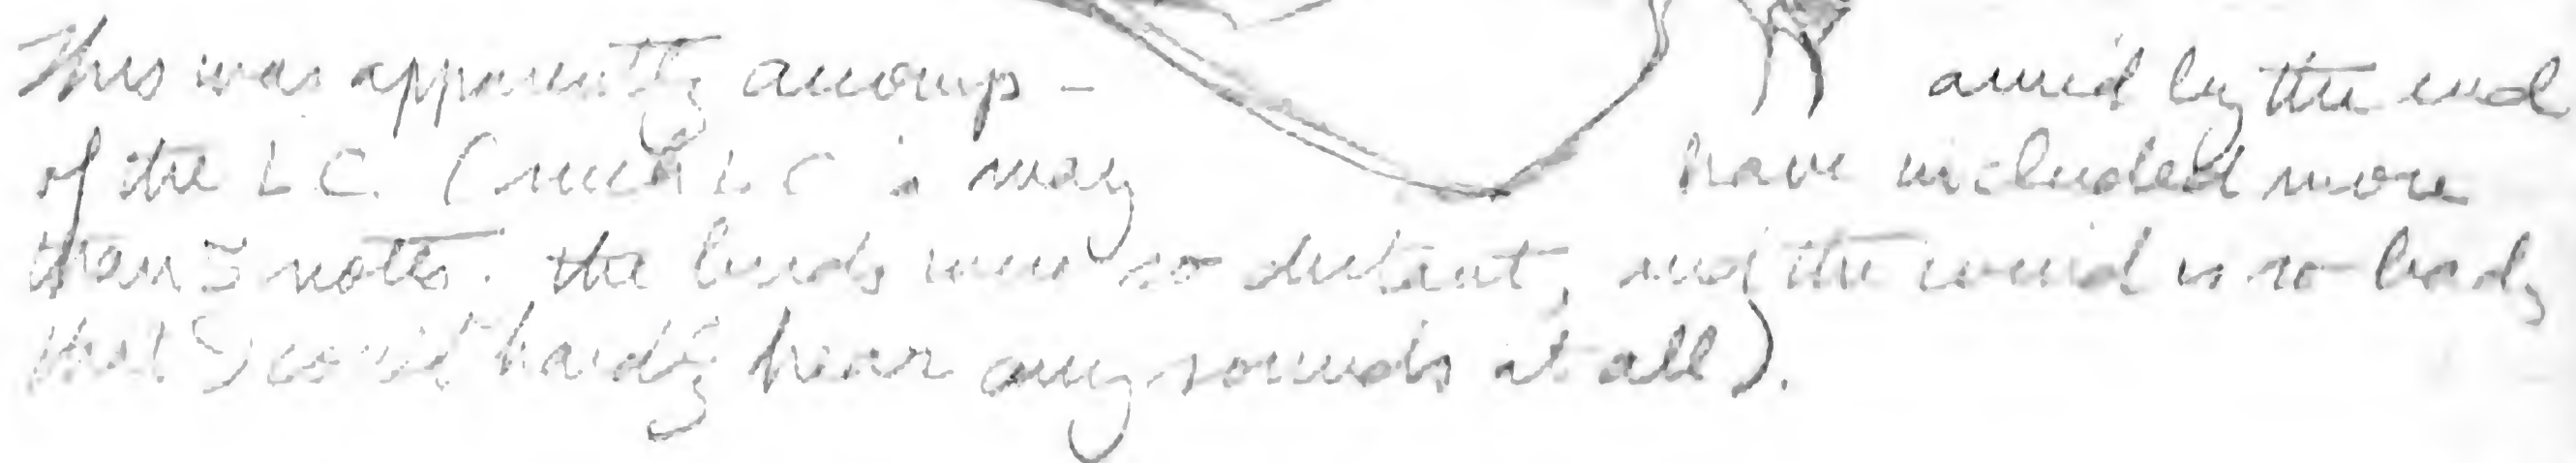 This was apparently accomp- anied by the end
of the L C. (such L C's may have included more
than 5 notes. the birds were so distant, and the wind is so bad,
that I could hardly hear any sounds at all).